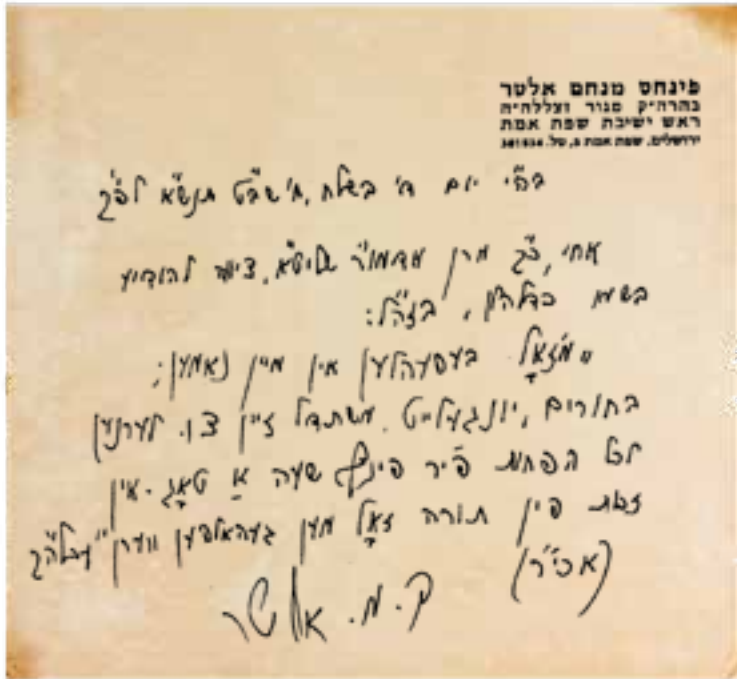 פינחס מנחם אלטר
בהרה״ק מגור זצללה״ה
ראש ישיבת שפת אמת
ירושלים, שפת אמת 5, טל. 381534
בה״י יום ה׳ בשלח, ח׳ שב״ט תנש״א לפ״ק
אחי, כ״ק מרן אדמו״ר שליט״א, ציוה להודיע
בשמו בזה״ל:
״מ׳זאָל בעפעהלען אין מיין נאמען:
בחורים, יונגעלייט, משתדל זיין צו לערנען
לכל הפחות פיר פינף שעה אַ טאָג. אין
זכות פון תורה זאָל מען געהאלפען ווערן״
(אכי״ר)
פ. מ. אלטר